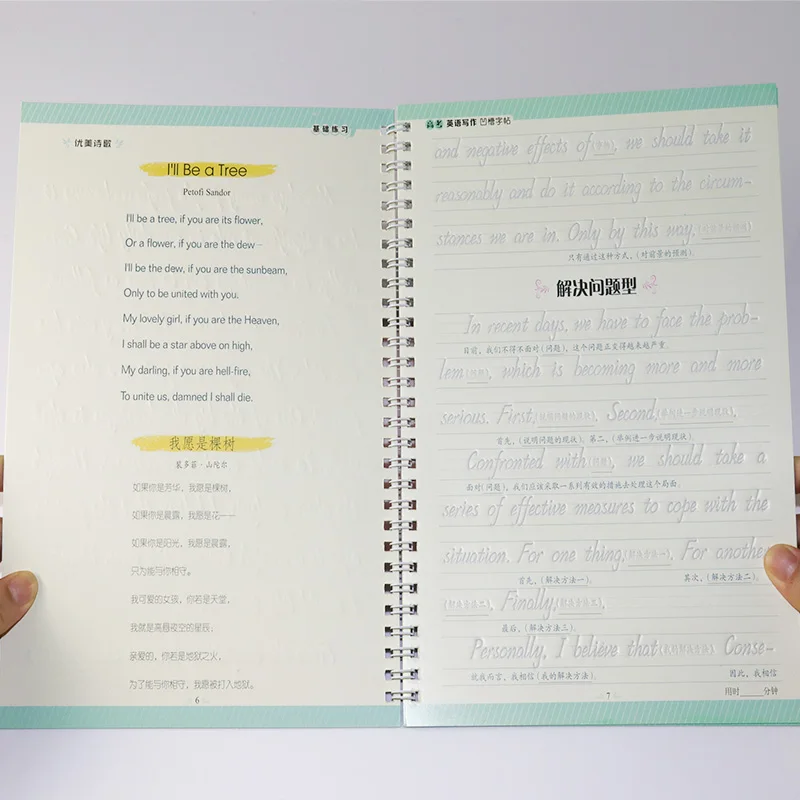 基础练习
优美诗歌
I'll Be a Tree
Petofi Sandor
I'll be a tree, if you are its flower,
Or a flower, if you are the dew—
I'll be the dew, if you are the sunbeam,
Only to be united with you.
My lovely girl, if you are the Heaven,
I shall be a star above on high,
My darling, if you are hell-fire,
To unite us, damned I shall die.
我愿是棵树
裴多菲·山陀尔
如果你是芳华，我愿是棵树，
如果你是晨露，我愿是花——
如果你是阳光，我愿是晨露，
只为能与你相守。
我可爱的女孩，你若是天堂，
我就是高悬夜空的星辰；
亲爱的，你若是地狱之火，
为了能与你相守，我愿被打入地狱。
6
高考 英语写作 凹槽字帖
and negative effects of , we should take it
reasonably and do it according to the circum-
stances we are in. Only by this way,
只有通过这种方式，(对前景的预测)。
解决问题型
In recent days, we have to face the prob-
目前，我们不得不面对(问题)，这个问题正变得越来越严重。
lem , which is becoming more and more
serious. First, (说明问题的现状). Second, (举例进一步说明现状).
首先，(说明问题的现状)。第二，(举例进一步说明现状)。
Confronted with , we should take a
面对(问题)，我们应该采取一系列有效的措施去处理这个局面。
series of effective measures to cope with the
situation. For one thing, (解决方法一). For another
首先，(解决方法一)。 其次，(解决方法二)。
(解决方法二). Finally, (解决方法三).
最后，(解决方法三)。
Personally, I believe that (我的解决方法). Conse-
就我而言，我相信(我的解决方法)。 因此，我相信
7
用时____分钟